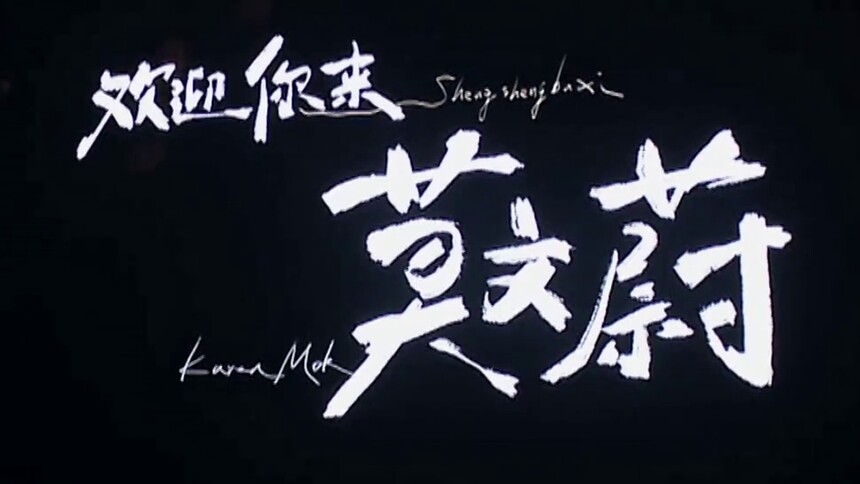 欢迎你来
Sheng sheng bu xi
莫文蔚
Karen Mok